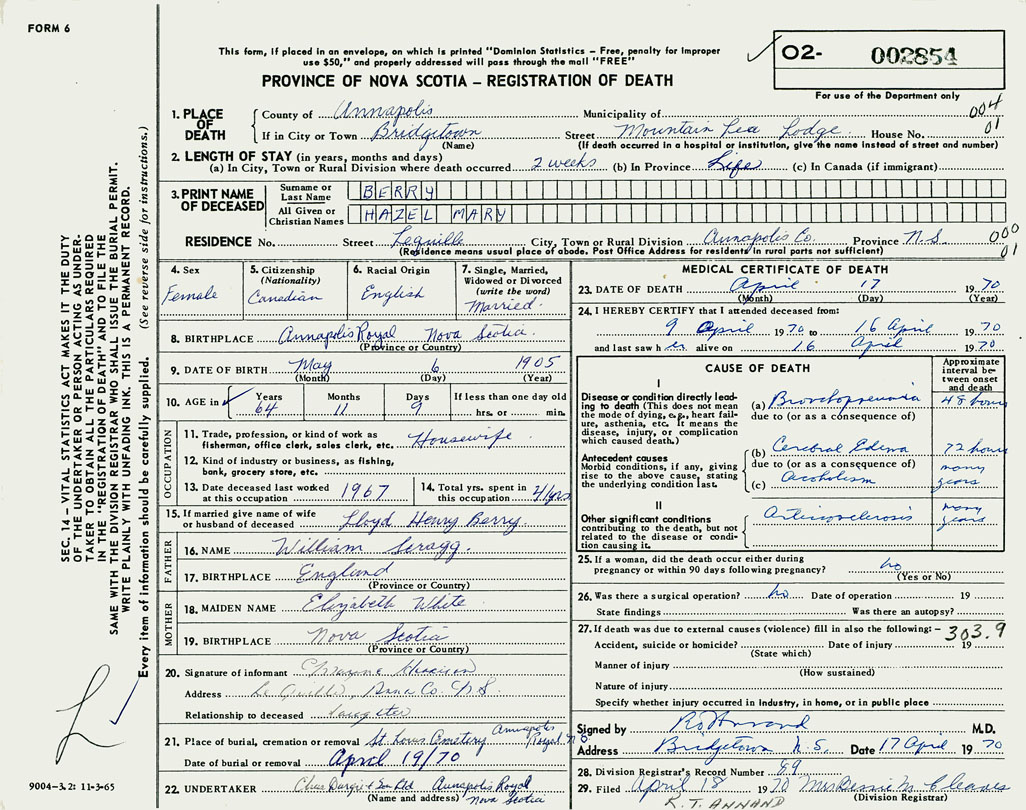 FORM 6
This form, if placed in an envelope, on which is printed "Dominion Statistics – Free, penalty for improper
use $50," and properly addressed will pass through the mail "FREE"
PROVINCE OF NOVA SCOTIA – REGISTRATION OF DEATH
O2- 002854
For use of the Department only
1. PLACE OF DEATH
County of Annapolis Municipality of 004
If in City or Town Bridgetown Street Mountain Lea Lodge House No. 01
(Name) (If death occurred in a hospital or institution, give the name instead of street and number)
2. LENGTH OF STAY (in years, months and days)
(a) In City, Town or Rural Division where death occurred 2 weeks (b) In Province Life (c) In Canada (if immigrant)
3. PRINT NAME OF DECEASED
Surname or Last Name BERRY
All Given or Christian Names HAZEL MARY
RESIDENCE No. Street Lequille City, Town or Rural Division Annapolis Co. Province N.S. 000
(Residence means usual place of abode. Post Office Address for residents in rural parts not sufficient) 01
4. Sex Female
5. Citizenship (Nationality) Canadian
6. Racial Origin English
7. Single, Married, Widowed or Divorced (write the word) Married
8. BIRTHPLACE Annapolis Royal Nova Scotia
(Province or Country)
9. DATE OF BIRTH May 6 1905
(Month) (Day) (Year)
10. AGE in Years 64 Months 11 Days 9 If less than one day old hrs. or min.
OCCUPATION
11. Trade, profession, or kind of work as
fisherman, office clerk, sales clerk, etc. Housewife
12. Kind of industry or business, as fishing,
bank, grocery store, etc.
13. Date deceased last worked
at this occupation 1967
14. Total yrs. spent in
this occupation 41 yrs
15. If married give name of wife
or husband of deceased Lloyd Henry Berry
FATHER
16. NAME William Scragg
17. BIRTHPLACE England
(Province or Country)
MOTHER
18. MAIDEN NAME Elizabeth White
19. BIRTHPLACE Nova Scotia
(Province or Country)
20. Signature of informant
Address Le Quille, Anna Co. N.S.
Relationship to deceased daughter
21. Place of burial, cremation or removal St. Louis Cemetery Annapolis Royal N S
Date of burial or removal April 19/70
22. UNDERTAKER & Son Ltd Annapolis Royal
(Name and address) Nova Scotia
MEDICAL CERTIFICATE OF DEATH
23. DATE OF DEATH April 17 1970
(Month) (Day) (Year)
24. I HEREBY CERTIFY that I attended deceased from:
9 April 1970 to 16 April 1970
and last saw her alive on 16 April 1970
CAUSE OF DEATH
Approximate interval between onset and death
I
Disease or condition directly leading
to death (This does not mean
the mode of dying, e.g., heart failure,
asthenia, etc. It means the
disease, injury, or complication
which caused death.)
(a) Bronchopneumonia 48 hours
due to (or as a consequence of)
Antecedent causes
Morbid conditions, if any, giving
rise to the above cause, stating
the underlying condition last.
(b) Cerebral Edema 72 hours
due to (or as a consequence of)
(c) Alcoholism many years
II
Other significant conditions
contributing to the death, but not
related to the disease or condition
causing it.
Arteriosclerosis many years
25. If a woman, did the death occur either during
pregnancy or within 90 days following pregnancy? no
(Yes or No)
26. Was there a surgical operation? no Date of operation 19
State findings Was there an autopsy?
27. If death was due to external causes (violence) fill in also the following: – 303.9
Accident, suicide or homicide? Date of injury 19
(State which)
Manner of injury
(How sustained)
Nature of injury
Specify whether injury occurred in industry, in home, or in public place
Signed by M.D.
Address Bridgetown N.S. Date 17 April 1970
28. Division Registrar's Record Number 89
29. Filed April 18 1970 Mrs Bessie M Cleaves
(Division Registrar)
R.T. ANNAND
SEC. 14 – VITAL STATISTICS ACT MAKES IT THE DUTY
OF THE UNDERTAKER OR PERSON ACTING AS UNDERTAKER
TO OBTAIN ALL THE PARTICULARS REQUIRED
IN THE "REGISTRATION OF DEATH" AND TO FILE THE
SAME WITH THE DIVISION REGISTRAR WHO SHALL ISSUE THE BURIAL PERMIT.
WRITE PLAINLY WITH UNFADING INK. THIS IS A PERMANENT RECORD.
Every item of information should be carefully supplied. (See reverse side for instructions.)
9004-3.2: 11-3-65